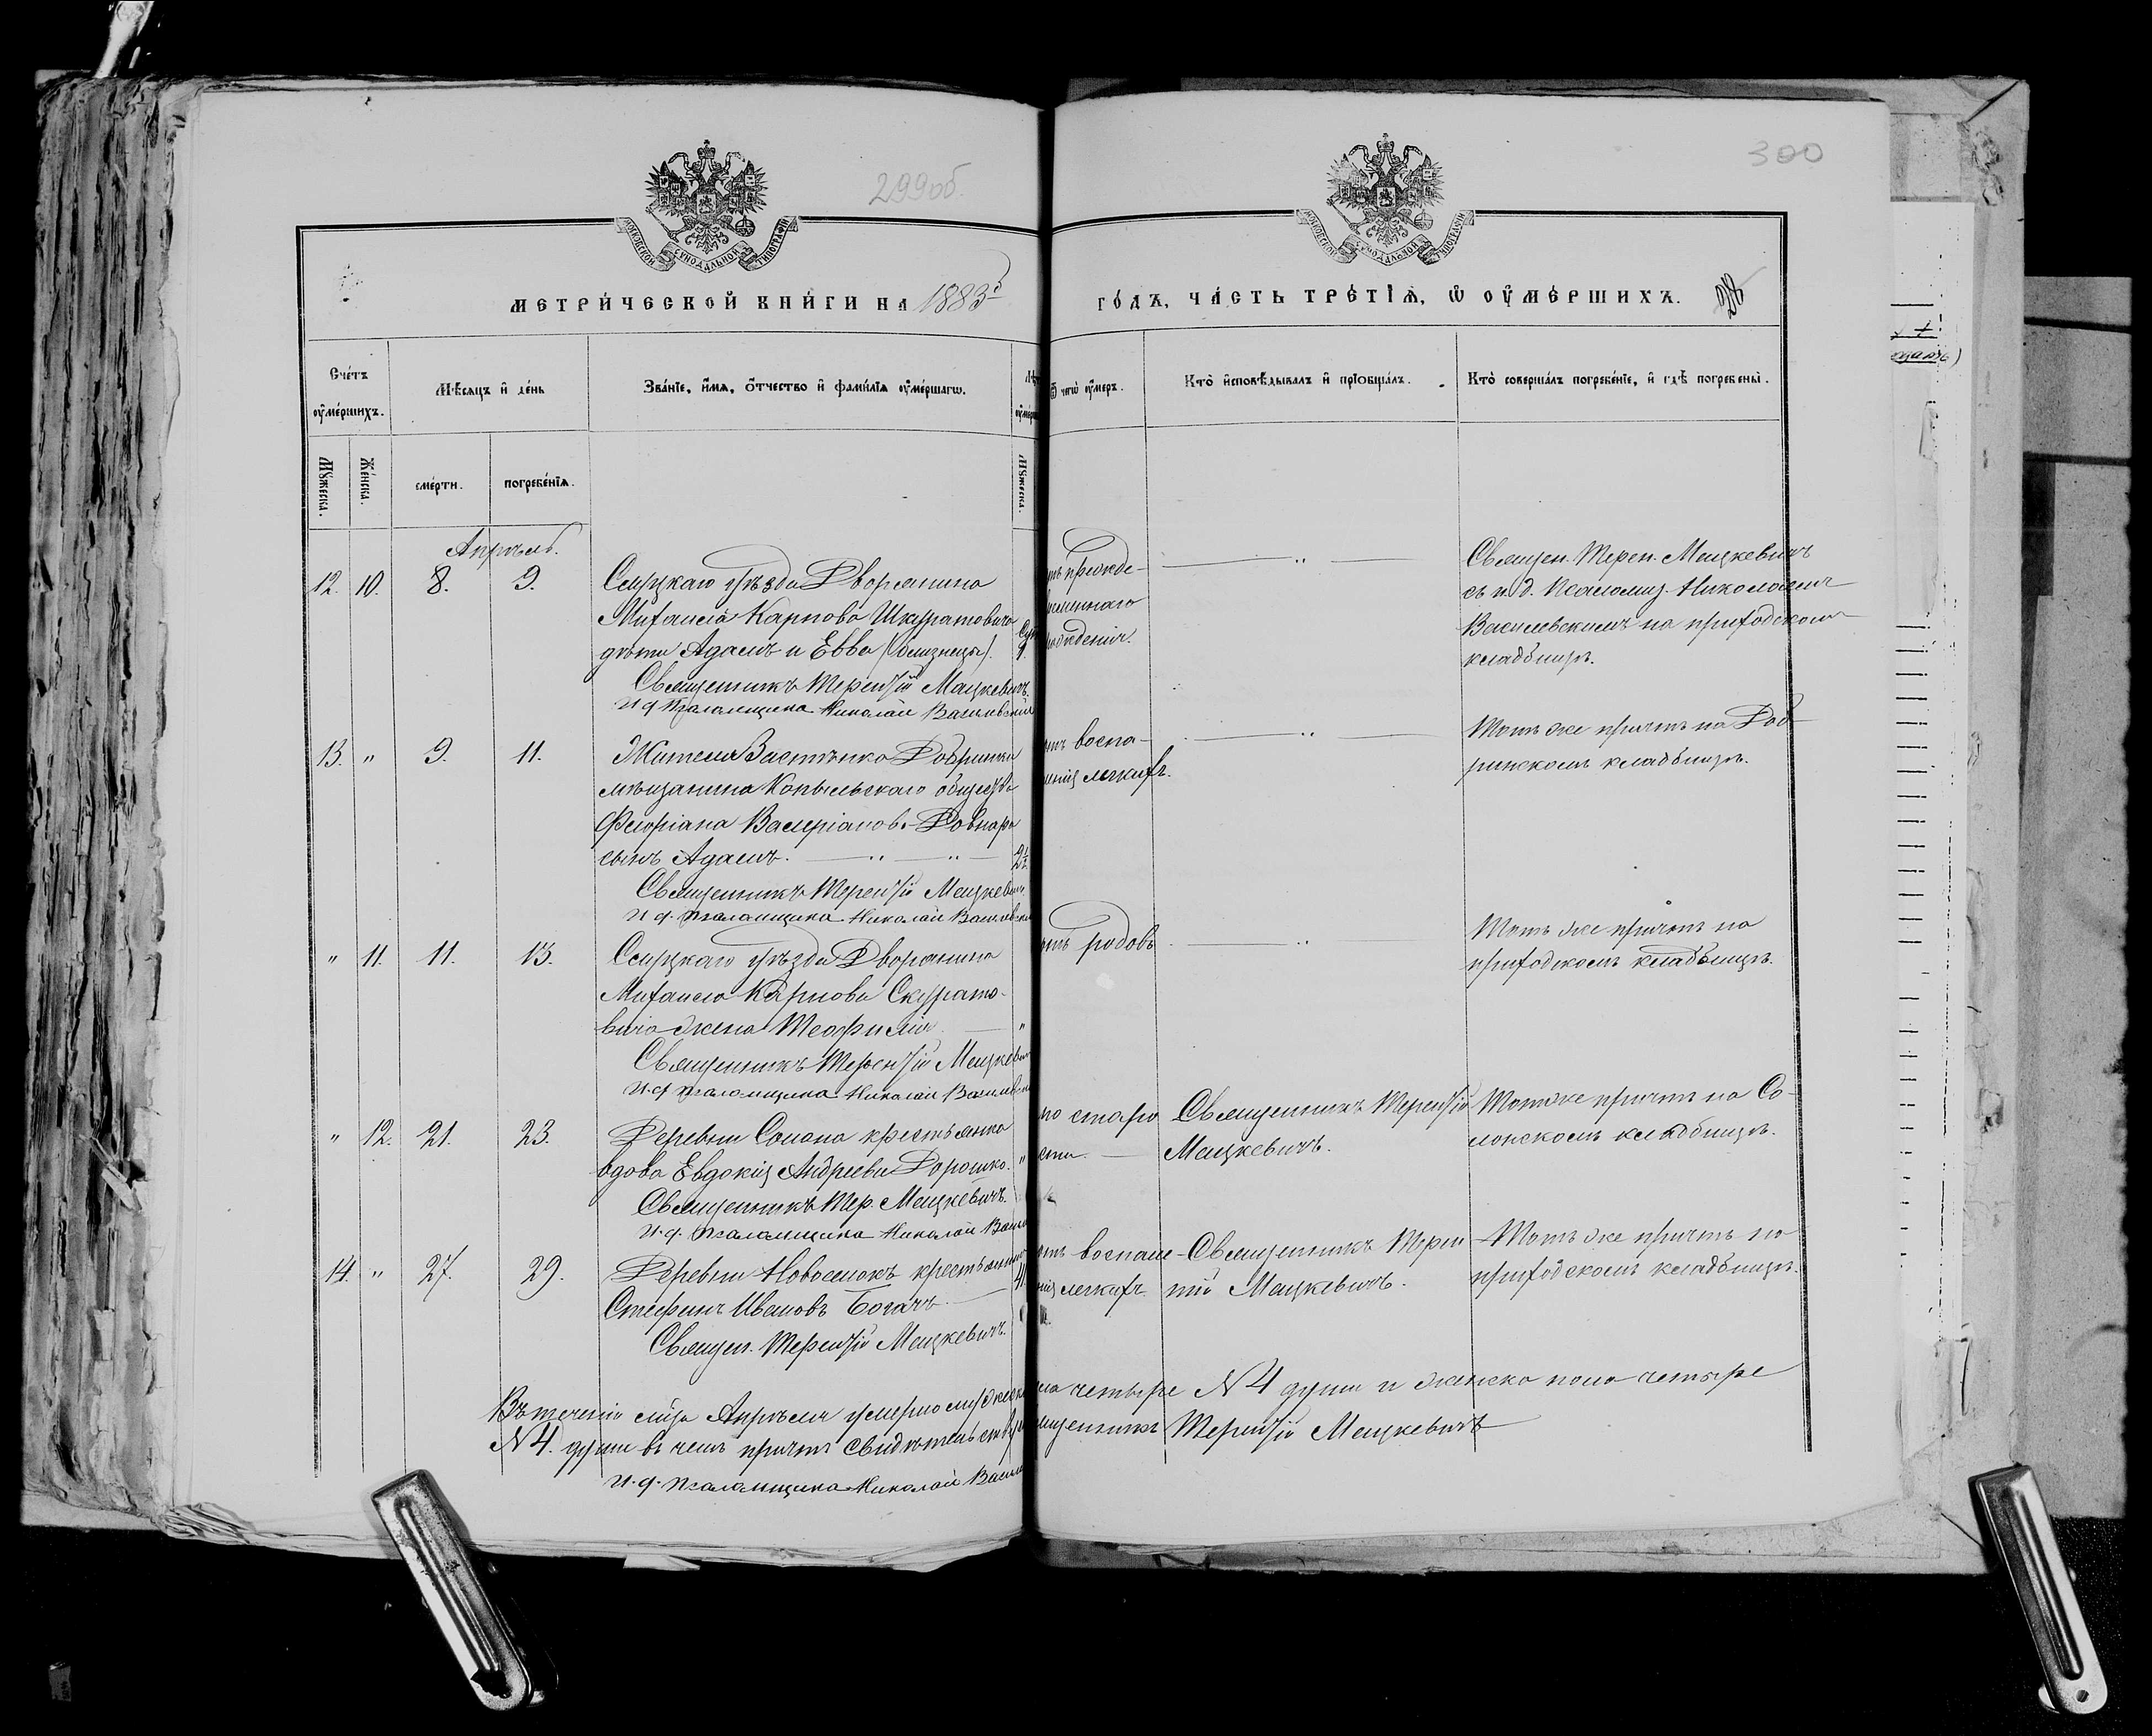 299об.
300
МОСКОВСКОЙ СѴНОДАЛЬНОЙ ТИПОГРАФІИ
МОСКОВСКОЙ СѴНОДАЛЬНОЙ ТИПОГРАФІИ
МЕТРИ́ЧЕСКОЙ КНИ́ГИ НА 1883й
ГО́ДЪ, ЧА́СТЬ ТРЕ́ТІѦ, Ѡ҆ ОУ҆МЕ́РШИХЪ.
Сче́тъ оу҆ме́ршихъ.
Мѣ́сяцъ и҆ де́нь
Зва́нїе, и҆́мѧ, о҆́тчество и҆ фами́лїѧ оу҆ме́ршагѡ.
Ѿ чегѡ̀ оу҆́меръ.
Кто̀ и҆сповѣ́дывалъ и҆ прїѡбща́лъ.
Кто̀ соверша́лъ погребе́нїе, и҆ гдѣ̀ погребены̀.
Мꙋ́жеска.
Же́нска.
сме́рти.
погребе́нїѧ.
Мꙋ́жеска.
Апрѣль.
12. 10. 8. 9. Слуцкаго уѣзда Дворянина
Михаила Карпова Шкуратовича
дѣти Адамъ и Евва (близнецы).
Священникъ Терентій Мацкевичъ.
И д Псаломщика Николай Василевскій
прежде-
временнаго
рожденія.
Священ. Терен. Мацкевичъ
съ и.д. Псаломщ. Николаемъ
Василевскимъ на приходскомъ
кладбищѣ.
13. " 9. 11. Жителя Застѣнка Добринки
мѣщанина Копыльскаго общества
Флоріана Валеріанов. Довнара
сынъ Адамъ. 2½
Священникъ Терентій Мацкевичъ
И д. псаломщика Николай Василевск
воспа-
ленія легкихъ.
Тотъ же причтъ на Доб-
ринскомъ кладбищѣ.
" 11. 11. 13. Слуцкаго уѣзда Дворянина
Михаила Карпова Скурато-
вича жена Теофилія "
Священникъ Терентій Мацкев
И.д псаломщика Николай Василевск
отъ родовъ
Тотъ же причтъ на
приходскомъ кладбищѣ.
" 12. 21. 23. Деревни Солона крестьянка
вдова Евдокія Андреева Дорошко. "
Священникъ Тер. Мацкевичъ.
И.д. псаломщика Николай Васил
по старо
сти.
Священникъ Терентій
Мацкевичъ.
Тотъ же причтъ на Со-
лонскомъ кладбищѣ.
14. " 27. 29. Деревни Новоселокъ крестьянинъ
Стефанъ Ивановъ Богачъ. 41
Священ. Терентій Мацкевичъ.
отъ воспале-
нія легкихъ
Священникъ Терен
тій Мацкевичъ.
Тотъ же причтъ на
приходскомъ кладбищѣ.
Въ теченіи мца Апрѣля умерло мужеска
пола четыре N 4 души и женска пола четыре
N 4. души въ чемъ причтъ свидѣтельствуетъ
Священникъ Терентій Мацкевичъ
И.д. псаломщика Николай Васил